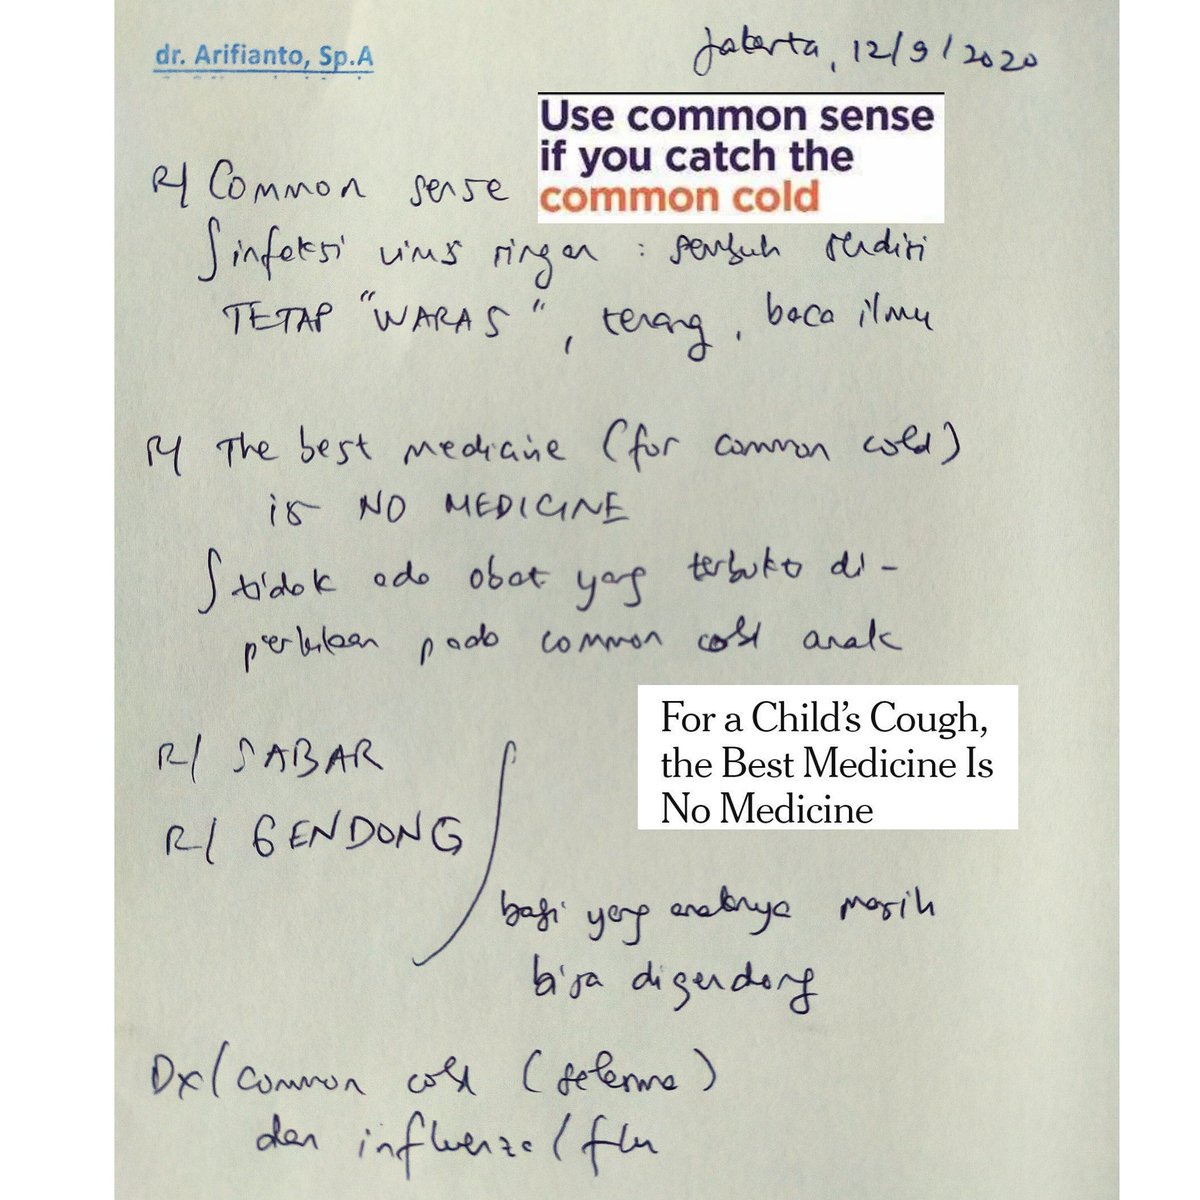 dr. Arifianto, Sp.A
Jakarta, 12/9/2020
Use common sense
if you catch the
common cold
R/ Common sense
∫ infeksi virus ringan : sembuh sendiri
TETAP "WARAS", tenang, baca ilmu
R/ The best medicine (for common cold)
is NO MEDICINE
∫ tidak ada obat yang terbukti di-
perlukan pada common cold anak
For a Child's Cough,
the Best Medicine Is
No Medicine
R/ SABAR
R/ GENDONG
bagi yang anaknya masih
bisa digendong
Dx/ common cold (selesma)
dan influenza/flu